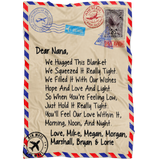 Dear Nana,
We Hugged This Blanket
We Squeezed It Really Tight
We Filled It With Our Wishes
Hope And Love And Light
So When You're Feeling Low
Just Hold It Really Tight
You'll Feel Our Love Within It
Morning, Noon, And Night
Love, Mike, Megan, Morgan,
Marshall, Bryan & Lorie